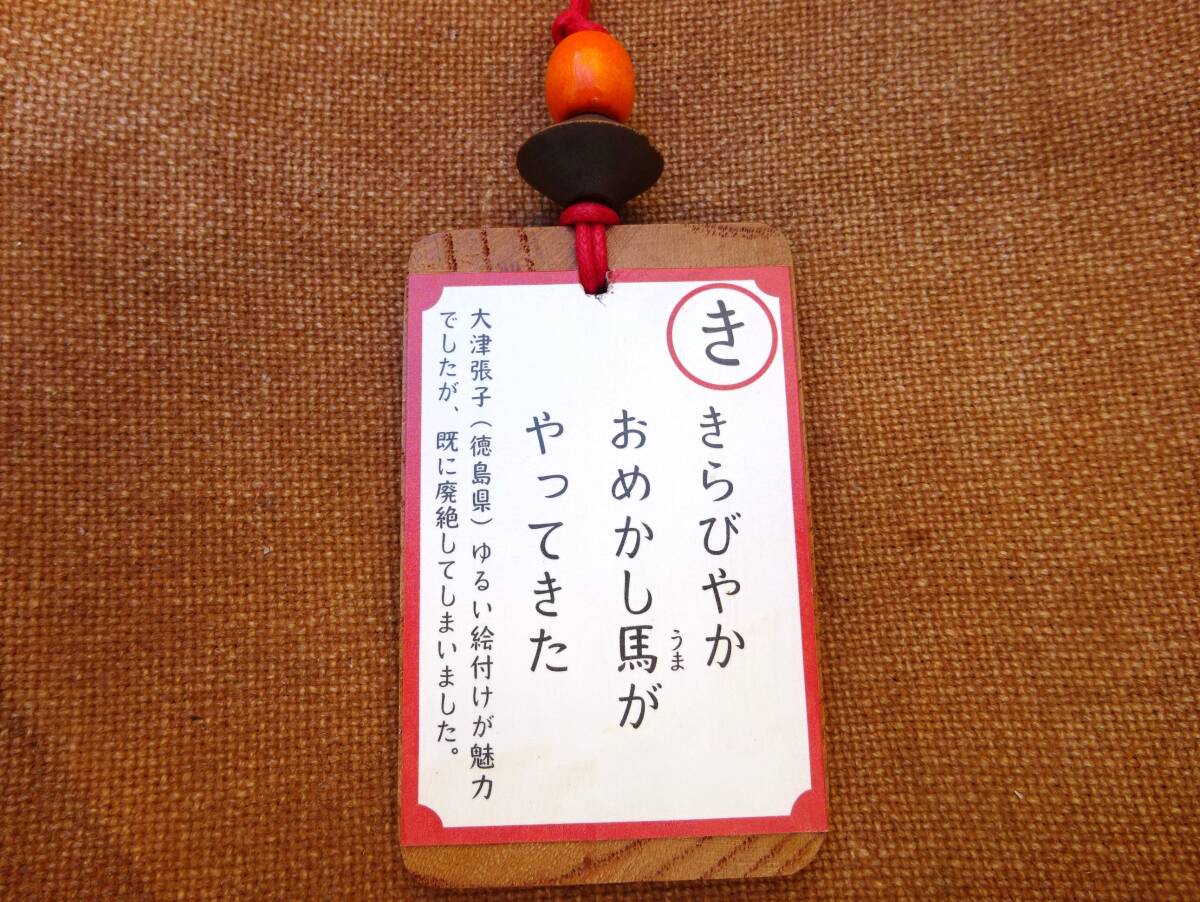 き
きらびやか
おめかし馬が
うま
やってきた
大津張子（徳島県）ゆるい絵付けが魅力
でしたが、既に廃絶してしまいました。